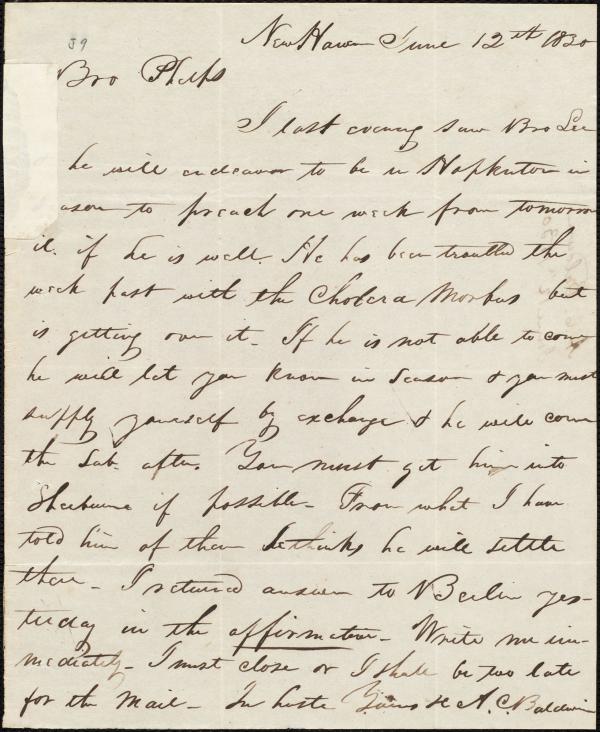 J9
New Haven June 12th 1830
Bro Phelps
I last evening saw Bro Lee
he will endeavor to be in Hopkinton in
ason to preach one week from tomorrow
it. if he is well. He has been troubled the
week past with the Cholera Morbus but
is getting over it - If he is not able to come
he will let you know in season & you must
supply yourself by exchange & he will come
the Sab. after. You must get him into
Sherburne if possible - From what I have
told him of them he thinks he will settle
there - I returned answer to Berlin yes-
terday in the affirmative - Write me im-
mediately - I must close or I shall be too late
for the Mail - In haste Yours &c A. C. Baldwin